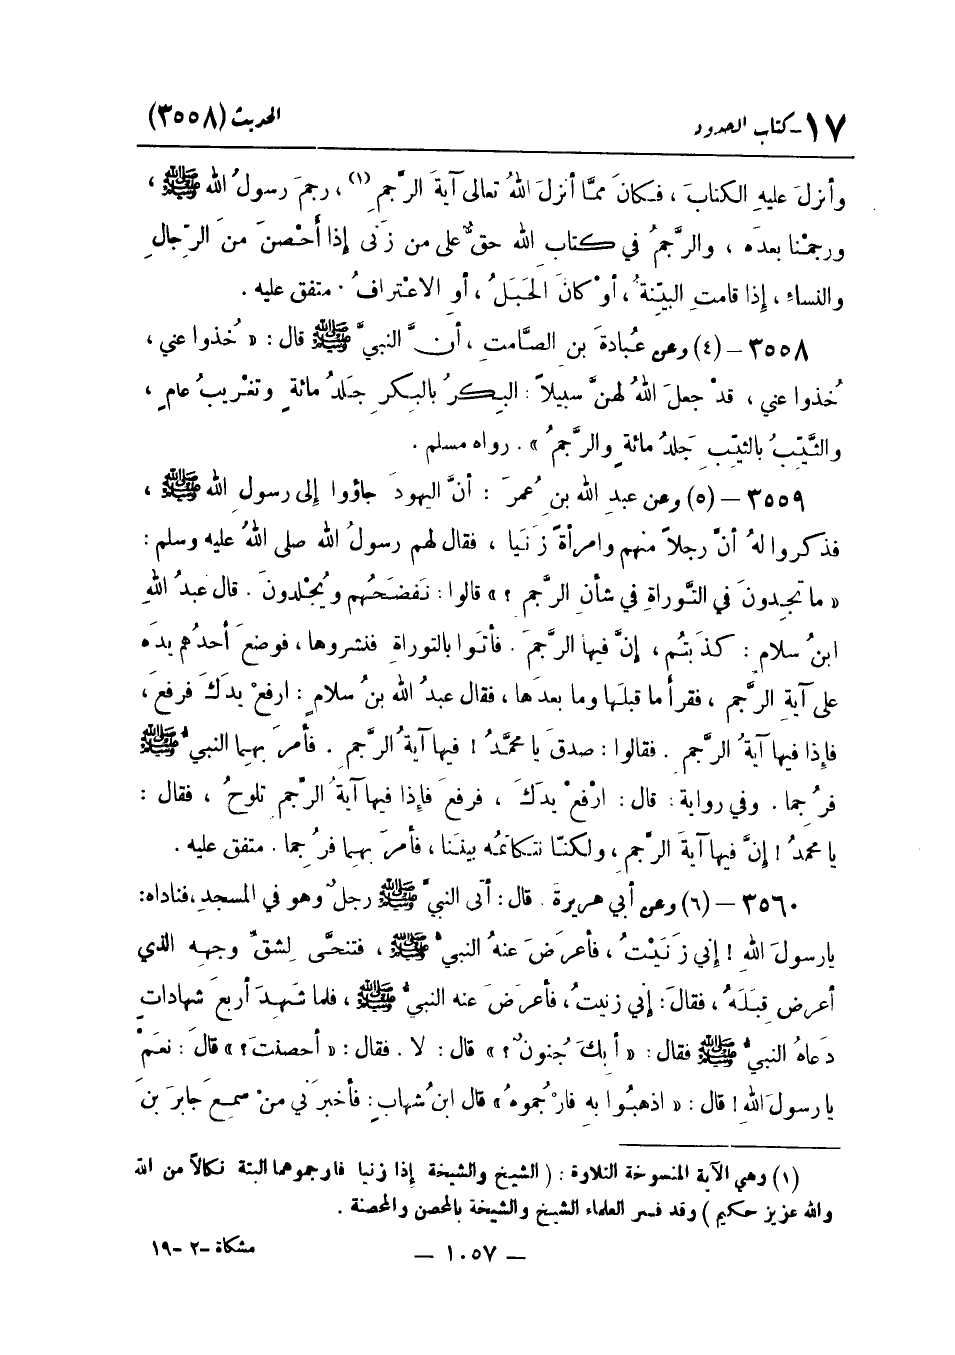 ١٧ - كتاب الحدود الحديث (٣٥٥٨)
وأنزلَ عليهِ الكتابَ ، فكانَ ممَّا أنزلَ اللهُ تعالى آيةَ الرَّجمِ (١) ، رجمَ رسولُ الله ﷺ ،
ورجمْنا بعدَه ، والرَّجمُ في كتابِ الله حقٌّ على من زَنى إذا أُحْصنَ منَ الرِّجالِ
والنساءِ ، إِذا قامتِ البيّنةُ ، أوْ كانَ الحَبَلُ ، أو الاعْترافُ . متفق عليه .
٣٥٥٨ – (٤) وعن عُبادةَ بنِ الصَّامتِ ، أنَّ النبيَّ ﷺ قال : « خُذوا عني ،
خُذوا عني ، قدْ جعلَ اللهُ لهنَّ سبيلاً : البكرُ بالبكرِ جَلدُ مائةٍ وتغْريبُ عامٍ ،
والثَّيّبُ بالثيّبِ جَلدُ مائةٍ والرَّجمُ » . رواه مسلم .
٣٥٥٩ – (٥) وعن عبدِ الله بنِ عُمرَ : أنَّ اليهودَ جاؤوا إِلى رسولِ الله ﷺ ،
فذكروا لهُ أنَّ رجلاً منهم وامرأةً زَنَيا ، فقال لهم رسولُ الله صلى اللهُ عليه وسلم :
« ما تجِدونَ في التَّوراةِ في شأنِ الرَّجمِ ؟ » قالوا : نَفضَحُهم ويُجْلدونَ . قال عبدُ اللهِ
ابنُ سلامٍ : كذَبتُم ، إِنَّ فيها الرَّجمَ . فأتَوا بالتوراةِ فنشروها ، فوضعَ أحدُهم يدَه
على آيةِ الرَّجمِ ، فقرأ ما قبلَها وما بعدَها ، فقال عبدُ الله بنُ سلامٍ : ارفعْ يدكَ فرفعَ ،
فإِذا فيها آيةُ الرَّجمِ . فقالوا : صدقَ يا محمَّدُ ! فيها آيةُ الرَّجمِ . فأمرَ بهِما النبيُّ ﷺ
فرُجما . وفي روايةٍ : قال : ارْفعْ يدَكَ ، فرفعَ فإِذا فيها آيةُ الرَّجمِ تلوحُ ، فقال :
يا محمدُ ! إِنَّ فيها آيةَ الرَّجمِ ، ولكنّا نتكاتَمُه بيننَا ، فأمرَ بهِما فرُجما . متفق عليه .
٣٥٦٠ – (٦) وعن أبي هريرةَ . قال : أتى النبيَّ ﷺ رجلٌ وهو في المسجدِ ، فناداه :
يا رسولَ اللهِ ! إِني زَنَيْتُ ، فأعرضَ عنهُ النبيُّ ﷺ ، فتنحَّى لشقِّ وجههِ الذي
أعرض قِبَلَهُ ، فقالَ : إِني زنيتُ ، فأعرَضَ عنه النبيُّ ﷺ ، فلما شَهِدَ أربعَ شهاداتٍ
دَعاهُ النبيُّ ﷺ فقال : « أبِكَ جُنونٌ ؟ » قال : لا . فقال : « أحصنتَ ؟ » قالَ : نعَمْ
يا رسولَ اللهِ ! قال : « اذهبُوا بهِ فارْجُموهُ » قال ابنُ شهابٍ : فأخبرَني مَنْ سمِعَ جابرَ بنَ
(١) وهي الآية المنسوخة التلاوة : ( الشيخ والشيخة إذا زنيا فارجموهما البتة نكالاً من الله
والله عزيز حكيم ) وقد فسر العلماء الشيخ والشيخة بالمحصن والمحصنة .
– ١٠٥٧ – مشكاة -٢ -١٩